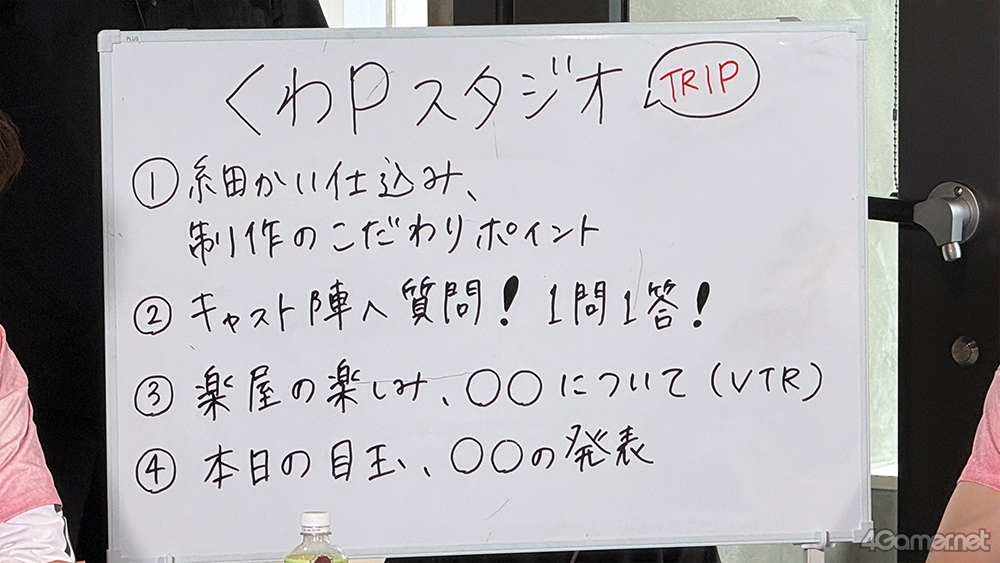 PLUS
くわPスタジオ TRIP
① 細かい仕込み、
制作のこだわりポイント
② キャスト陣へ質問! 1問1答!
③ 楽屋の楽しみ、○○について(VTR)
④ 本日の目玉、○○の発表
4Gamer.net